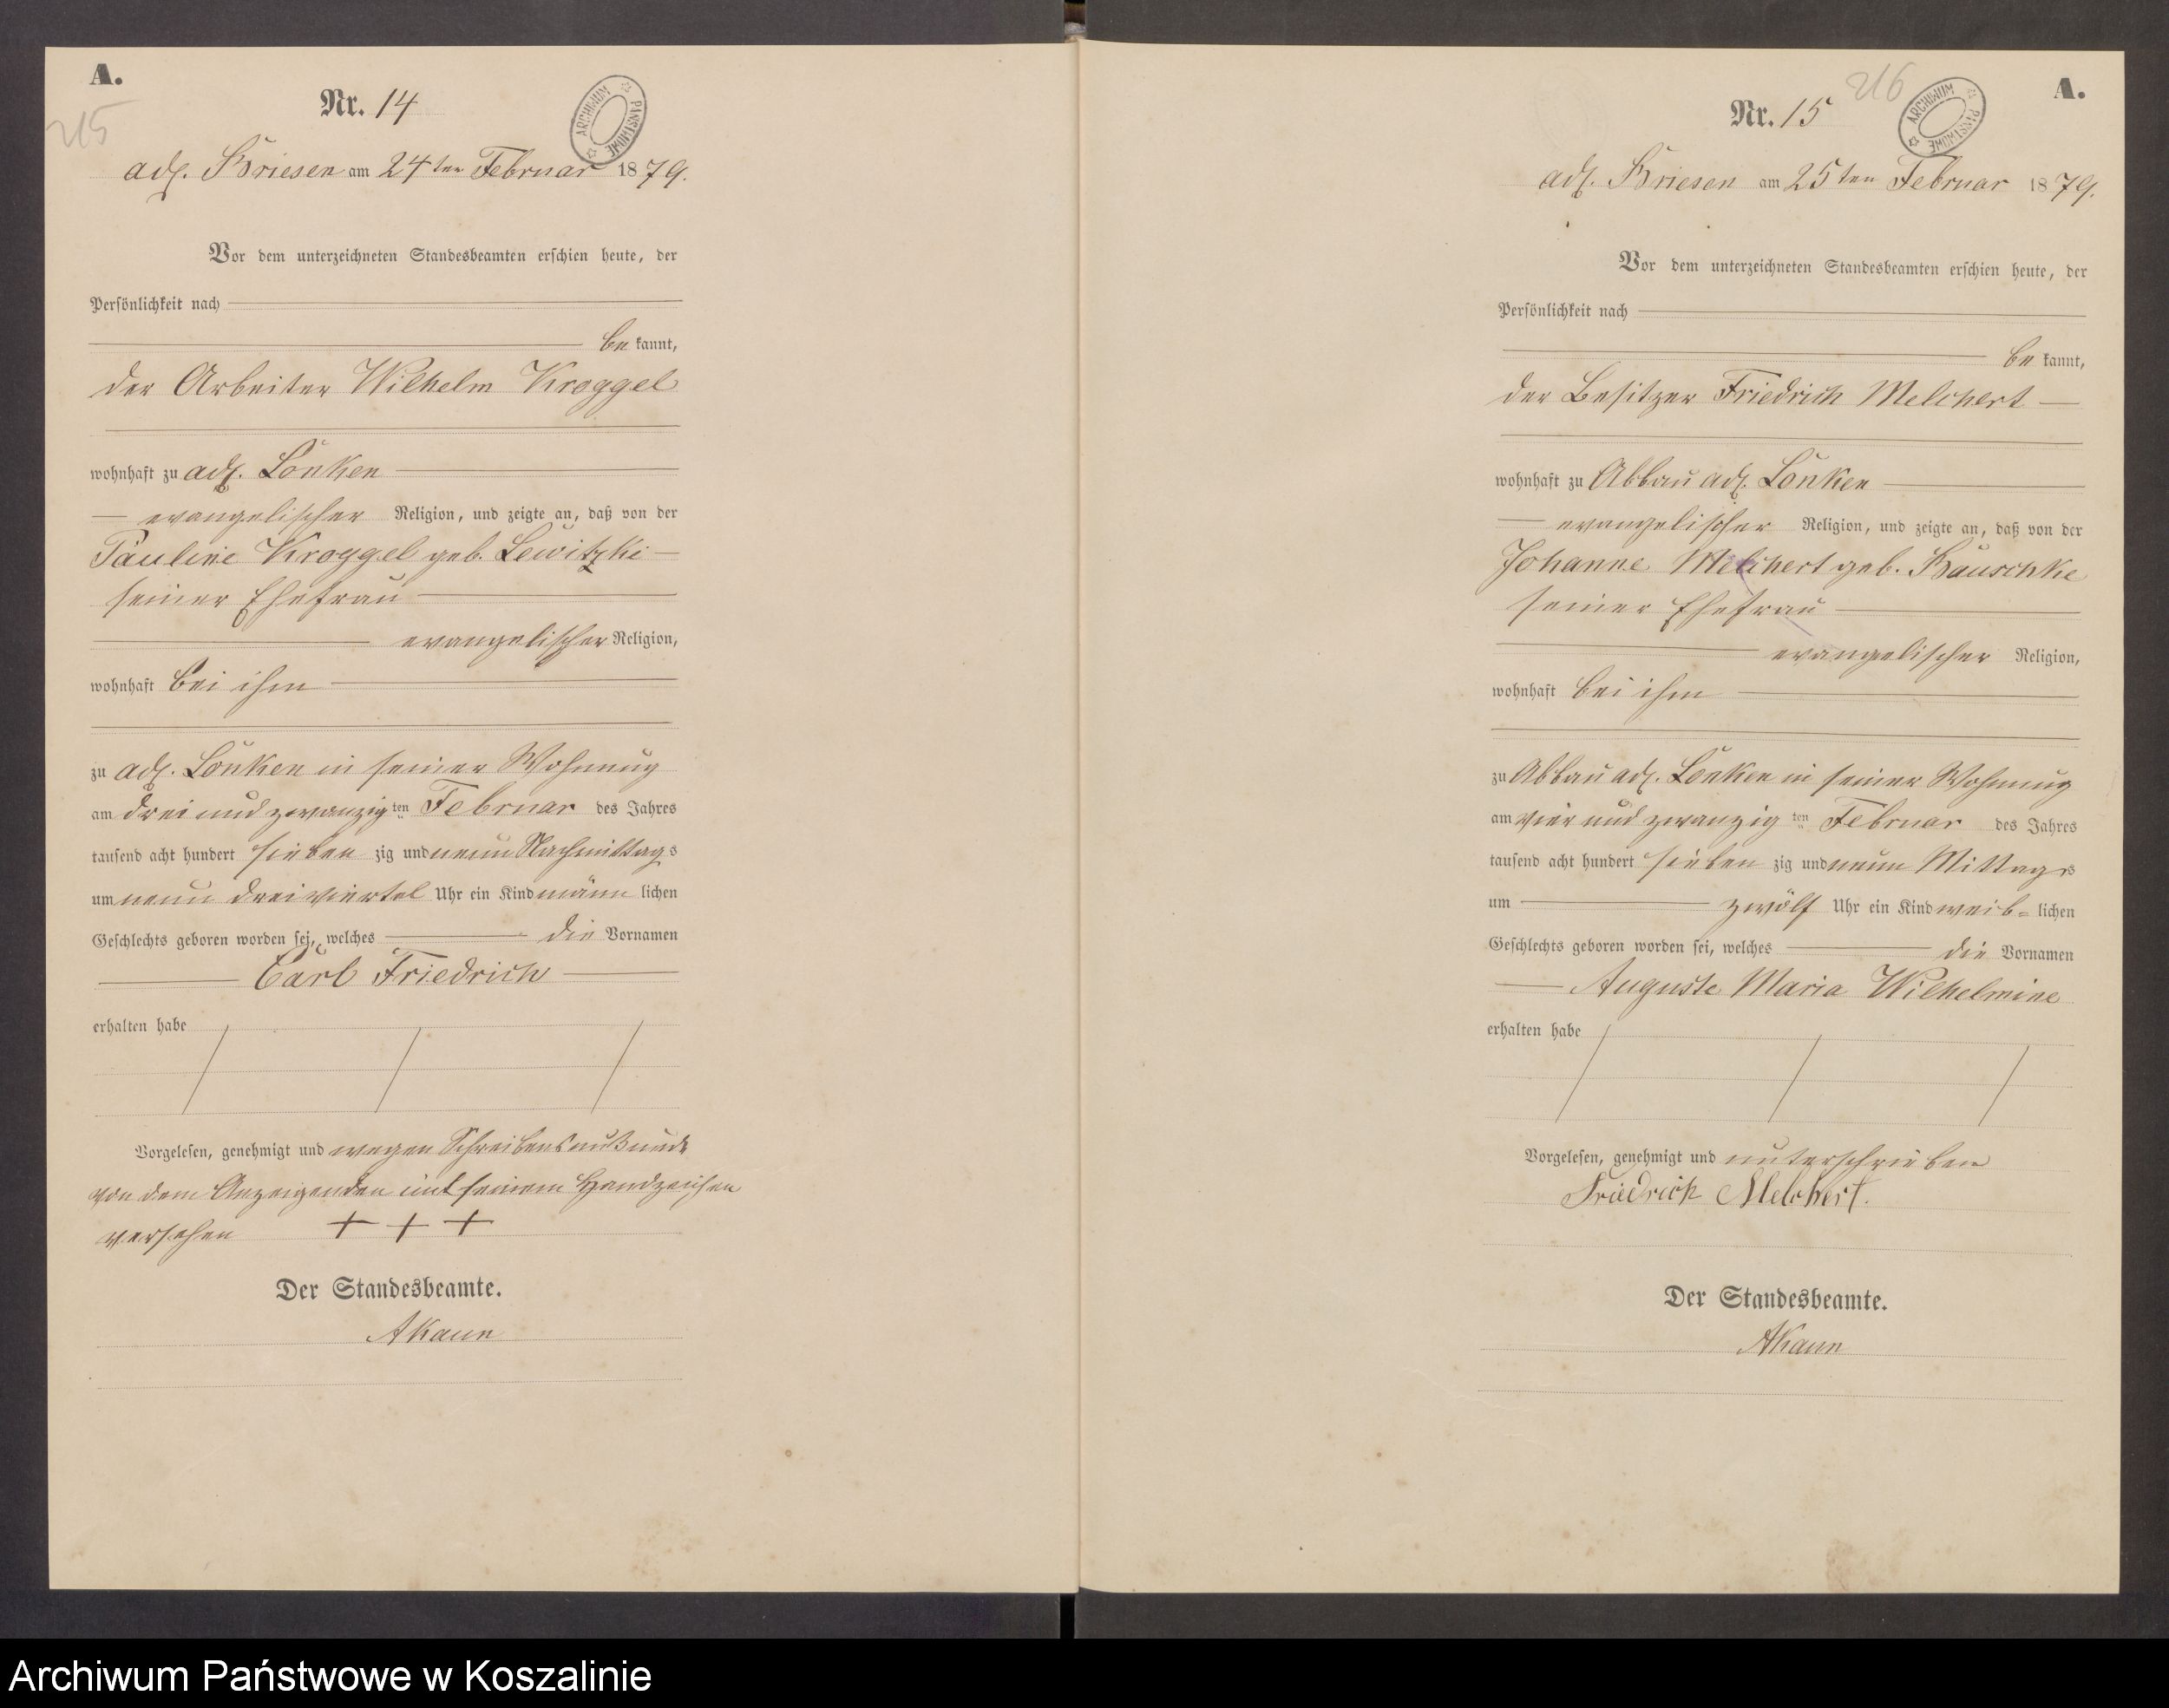 A.
215
Nr. 14
ARCHIWUM PAŃSTWOWE
adl. Briesen am 24ten Februar 1879.
Vor dem unterzeichneten Standesbeamten erschien heute, der
Persönlichkeit nach
bekannt,
der Arbeiter Wilhelm Kroggel
wohnhaft zu adl. Lonken
evangelischer Religion, und zeigte an, daß von der
Pauline Kroggel geb. Lewitzki
seiner Ehefrau
evangelischer Religion,
wohnhaft bei ihm
zu adl. Lonken in seiner Wohnung
am drei und zwanzigten Februar des Jahres
tausend acht hundert siebenzig und neun Nachmittags
um neun dreiviertel Uhr ein Kind männlichen
Geschlechts geboren worden sei, welches die Vornamen
Carl Friedrich
erhalten habe
Vorgelesen, genehmigt und wegen Schreibens
von dem Anzeigenden mit seinem Handzeichen
versehen + + +
Der Standesbeamte.
AKaun
216
A.
Nr. 15
ARCHIWUM PAŃSTWOWE
adl. Briesen am 25ten Februar 1879.
Vor dem unterzeichneten Standesbeamten erschien heute, der
Persönlichkeit nach
bekannt,
der Besitzer Friedrich Melchert
wohnhaft zu Abbau adl. Lonken
evangelischer Religion, und zeigte an, daß von der
Johanne Melchert geb. Bauschke
seiner Ehefrau
evangelischer Religion,
wohnhaft bei ihm
zu Abbau adl. Lonken in seiner Wohnung
am vier und zwanzigten Februar des Jahres
tausend acht hundert siebenzig und neun Mittags
um zwölf Uhr ein Kind weib=lichen
Geschlechts geboren worden sei, welches die Vornamen
Auguste Maria Wilhelmine
erhalten habe
Vorgelesen, genehmigt und unterschrieben
Friedrich Melchert.
Der Standesbeamte.
AKaun
Archiwum Państwowe w Koszalinie